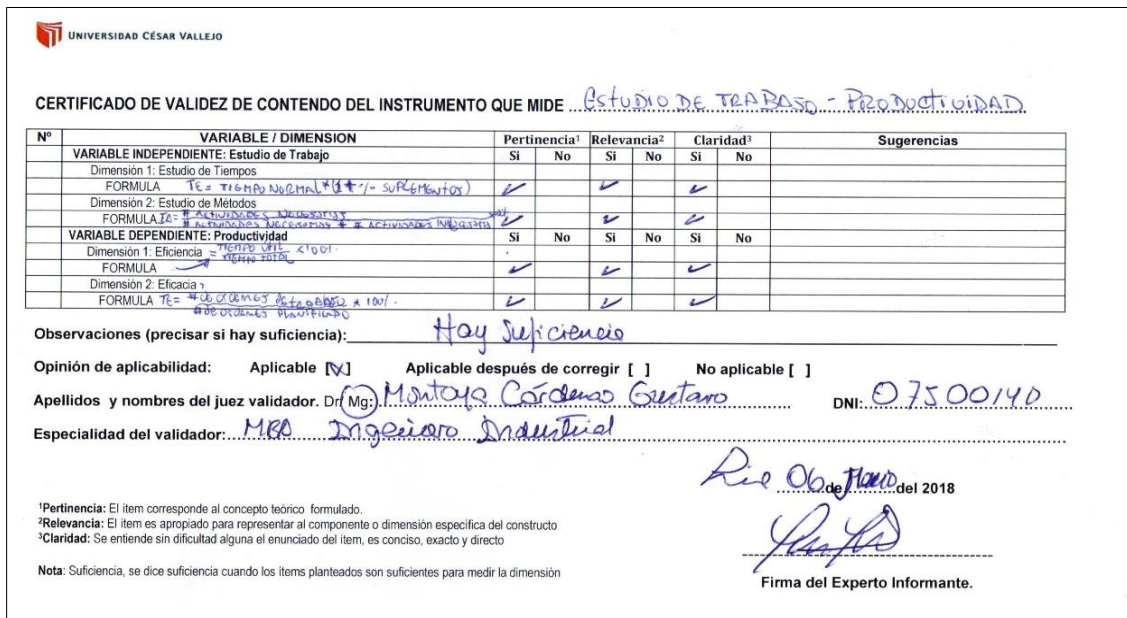 UNIVERSIDAD CÉSAR VALLEJO
CERTIFICADO DE VALIDEZ DE CONTENDO DEL INSTRUMENTO QUE MIDE ESTUDIO DE TRABAJO - PRODUCTIVIDAD
Nº VARIABLE / DIMENSION Pertinencia¹ Relevancia² Claridad³ Sugerencias
VARIABLE INDEPENDIENTE: Estudio de Trabajo Si No Si No Si No
Dimensión 1: Estudio de Tiempos
FORMULA TE = TIEMPO NORMAL * (1 + % SUPLEMENTOS)
Dimensión 2: Estudio de Métodos
FORMULA IA = # ACTIVIDADES NECESARIAS
# ACTIVIDADES NECESARIAS + # ACTIVIDADES
VARIABLE DEPENDIENTE: Productividad Si No Si No Si No
Dimensión 1: Eficiencia = TIEMPO UTIL x 100%
TIEMPO TOTAL
FORMULA
Dimensión 2: Eficacia
FORMULA TE = # de ordenes de trabajo x 100%
# DE ORDENES PLANIFICADO
Observaciones (precisar si hay suficiencia): Hay Suficiencia
Opinión de aplicabilidad: Aplicable [X] Aplicable después de corregir [ ] No aplicable [ ]
Apellidos y nombres del juez validador. Dr/ Mg: Montoya Cárdenas Gustavo DNI: 07500140
Especialidad del validador: MBA Ingeniero Industrial
06 de del 2018
¹Pertinencia: El item corresponde al concepto teórico formulado.
²Relevancia: El item es apropiado para representar al componente o dimensión específica del constructo
³Claridad: Se entiende sin dificultad alguna el enunciado del item, es conciso, exacto y directo
Nota: Suficiencia, se dice suficiencia cuando los items planteados son suficientes para medir la dimensión
Firma del Experto Informante.